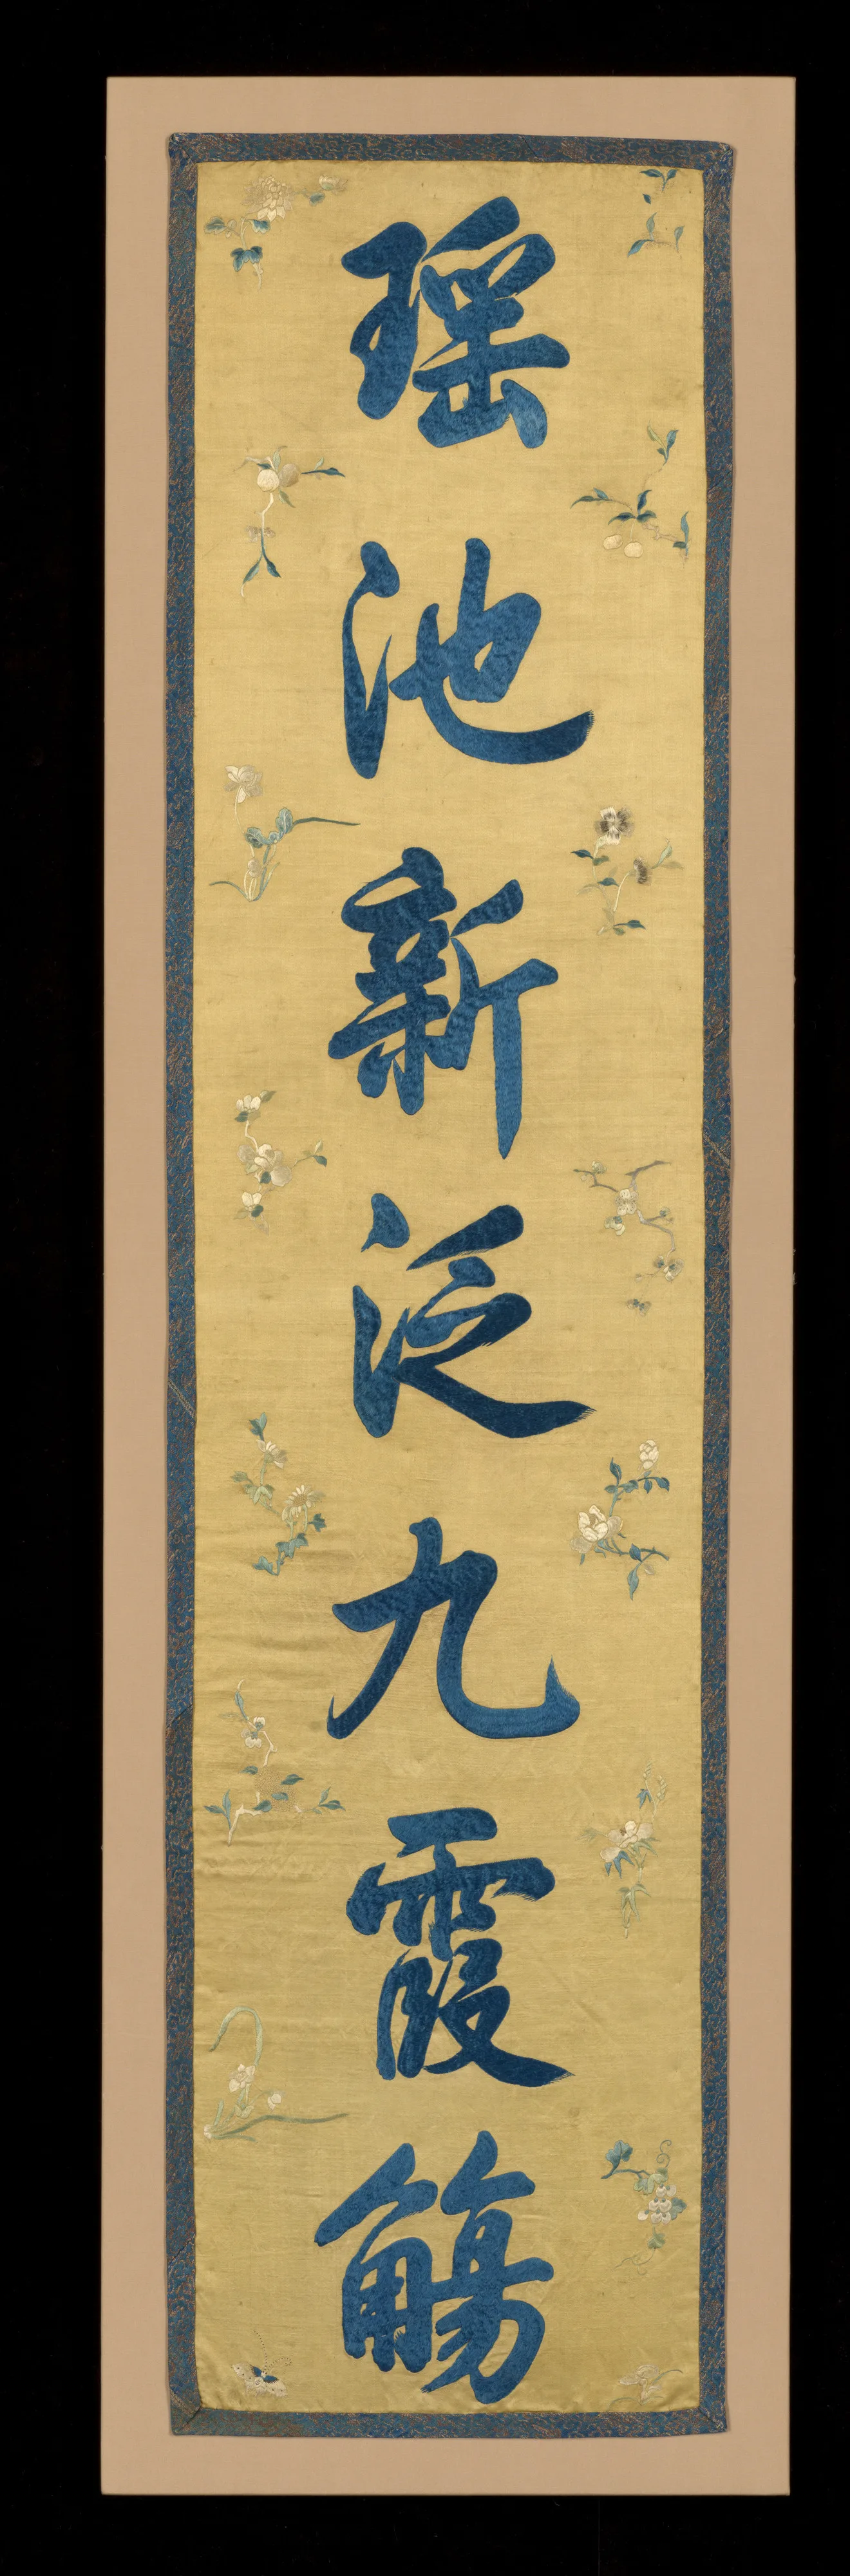 瑶池新泛九霞觴